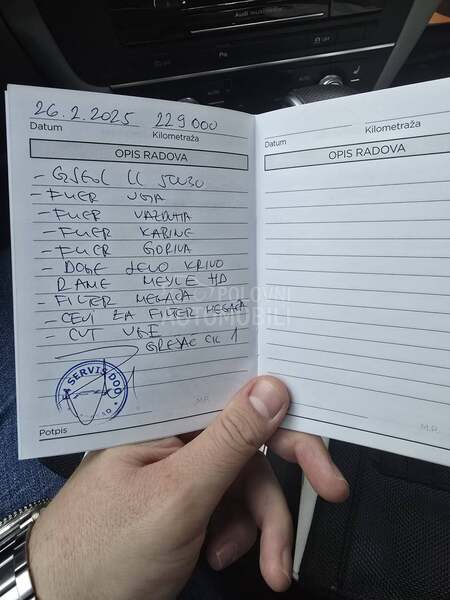 Audi multimedia
26.2.2025 229000
Datum Kilometraža
OPIS RADOVA
- FILTER ULJA
- FILTER VAZDUHA
- FILTER KABINE
- FILTER GORIVA
- DONJE DELO KRIVO
RAME MEYLE HD
- FILTER MEGAČA
- CEVI ZA FILTER MEGAČA
GREJAČ CIL 1
SERVIS DOO
Potpis M.P.
Datum Kilometraža
OPIS RADOVA
M.P.
POLOVNI
AUTOMOBILI